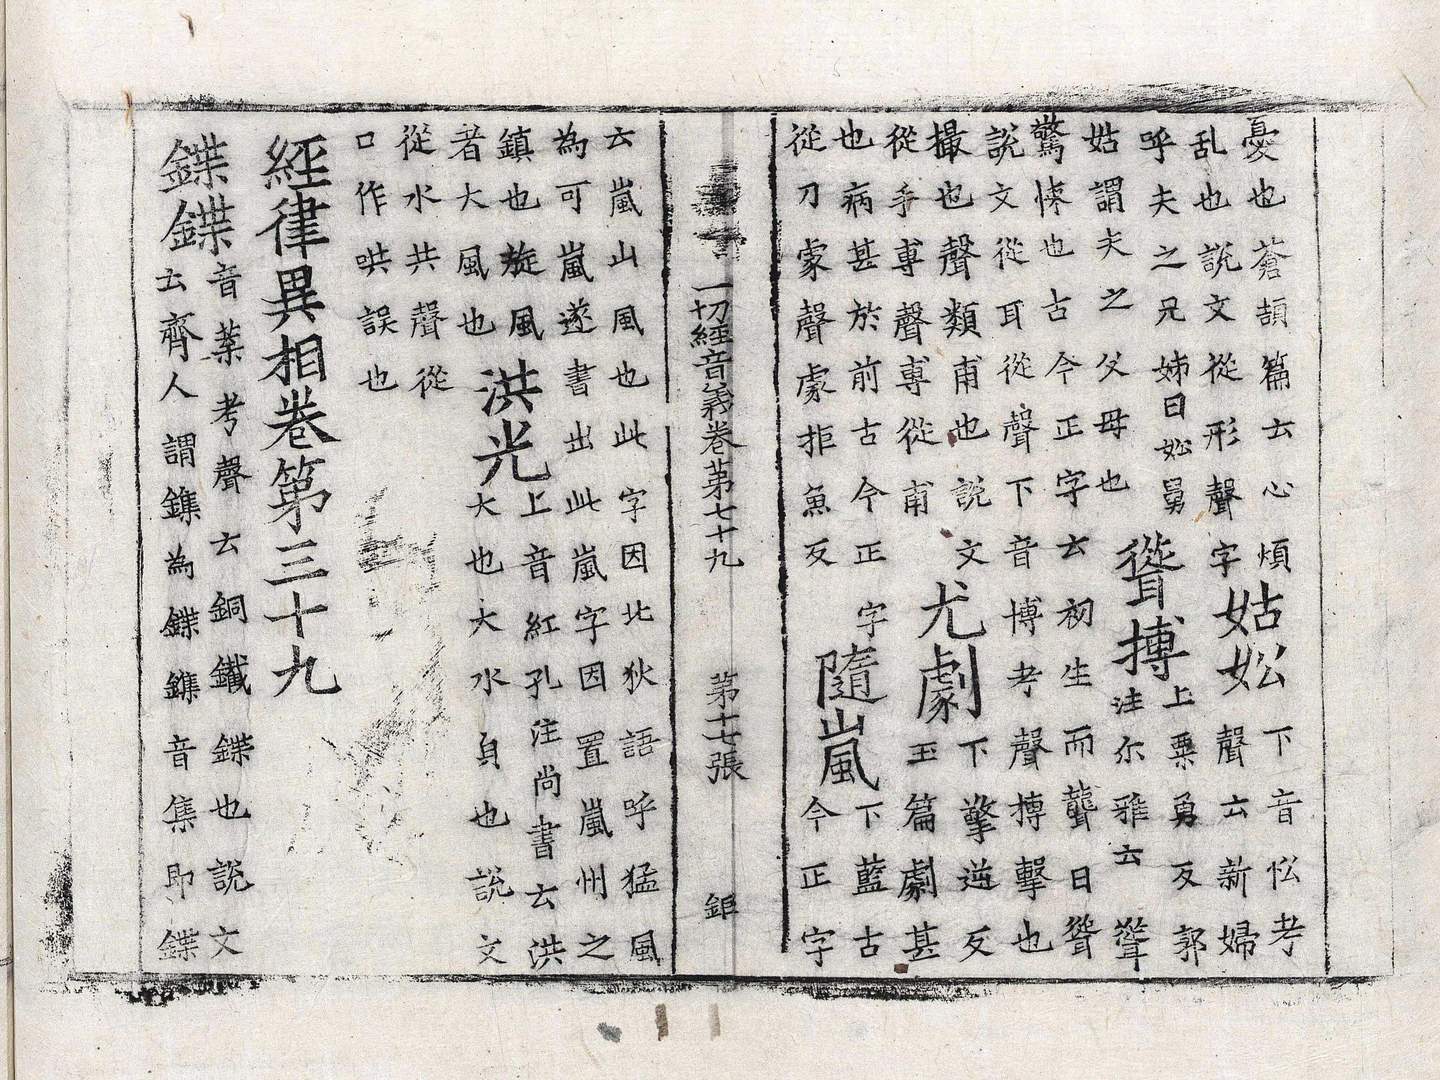 憂也蒼頡篇云心煩
乱也說文從形聲字
姑妐
下音忪考
聲云新婦
呼夫之兄姊曰妐舅
姑謂夫之父母也
聳搏
上粟勇反郭
注尒雅云聳
驚悚也古今正字云初生而聾曰聳
說文從耳從聲下音博考聲搏擊也
撮也聲類甫也說文
從手尃聲尃從甫
尤劇
下擎逆反
玉篇劇甚
也病甚於前古今正字
從刀豦聲豦拒魚反
隨嵐
下藍古
今正字
一切經音義卷第七十九 第十七張 鉅
云嵐山風也此字因北狄語呼猛風
為可嵐遂書出此嵐字因置嵐州之
鎮也旋風
者大風也
洪光
上音紅孔注尚書云洪
大也大水皃也說文
從水共聲從
口作哄誤也
經律異相卷第三十九
鍱鍱
音葉考聲云銅鐵鍱也說文
云齊人謂鏶為鍱鏶音集即鍱